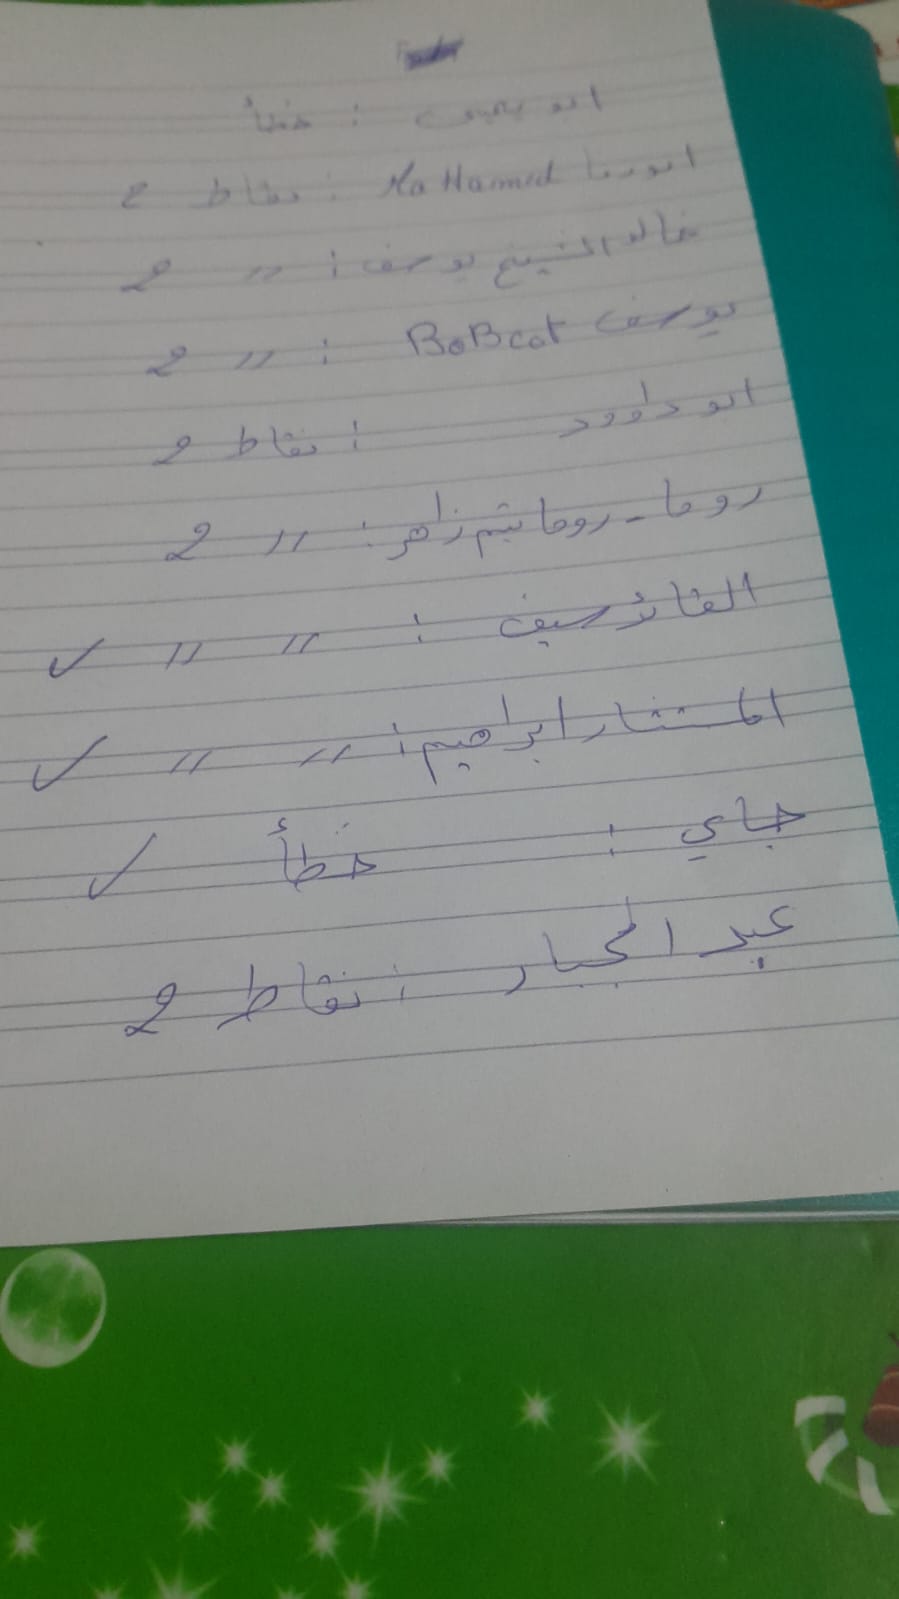 ابو يعيى : خطأ
ابو رضا Mohamed : نقاط 2
خالد الشيخ يوسف : 〃 2
يوسف BoBcat : 〃 2
ابو داوود : نقاط 2
روما - روما يتيم زاهر : 〃 2
القائد سيف : 〃 〃 ✓
المستشار ابراهيم : 〃 〃 ✓
جاي : خطأ ✓
عبد الجبار : نقاط 2